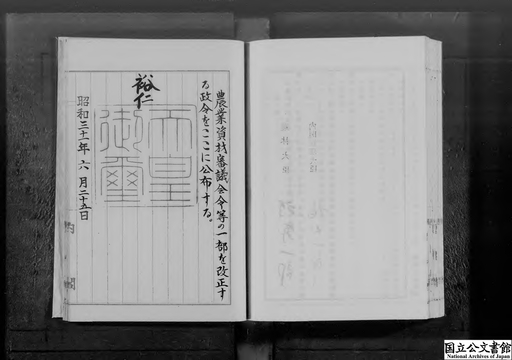 農業資材審議会令等の一部を改正す
る政令をここに公布する。
裕仁
天皇
御璽
昭和三十一年六月二十五日
国立公文書館
National Archives of Japan